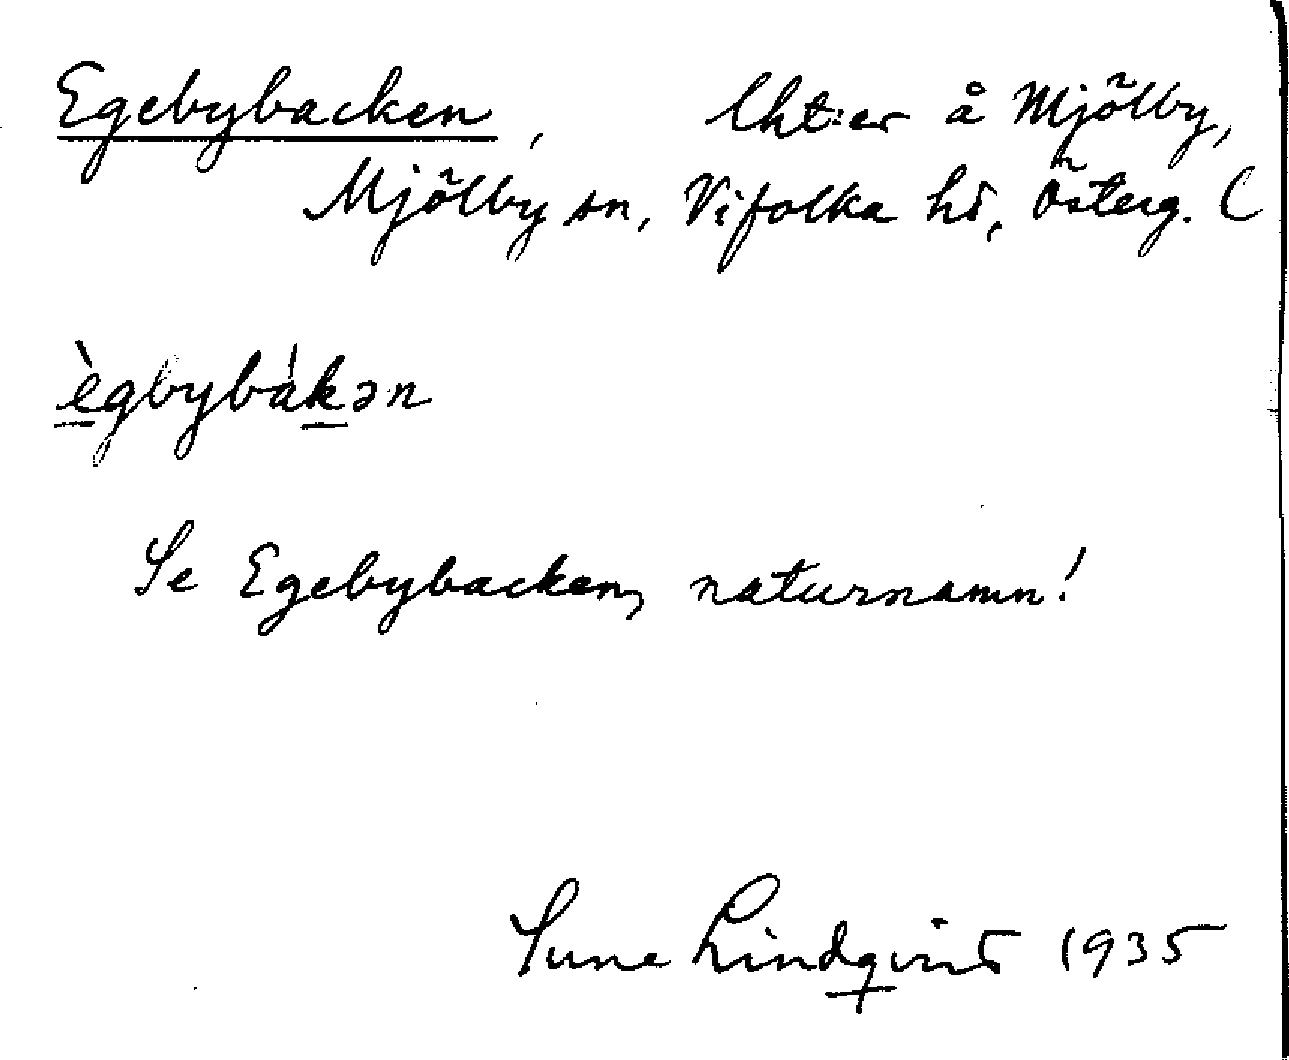 Egebybacken, lht:er å Mjölby,
Mjölby sn, Vifolka hd, Österg. (
ègbybàkən
Se Egebybacken, naturnamn!
Sune Lindqvist 1935